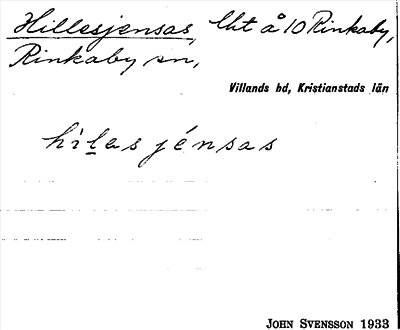 Hillesjensas, lht å 10 Rinkaby,
Rinkaby sn,
Villands hd, Kristianstads län
hilas jénsas
JOHN SVENSSON 1933